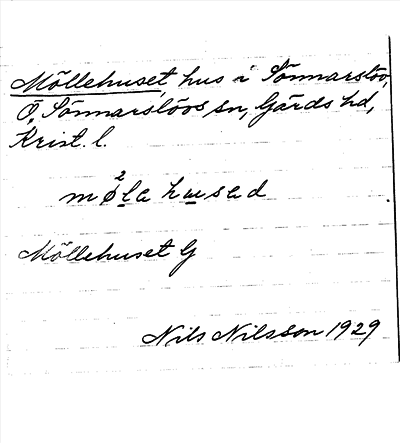 Möllehuset, hus i Sönnarslöv,
Ö. Sönnarslövs sn, Gärds hd,
Krist. l.
2
møla husad
Möllehuset G
Nils Nilsson 1929